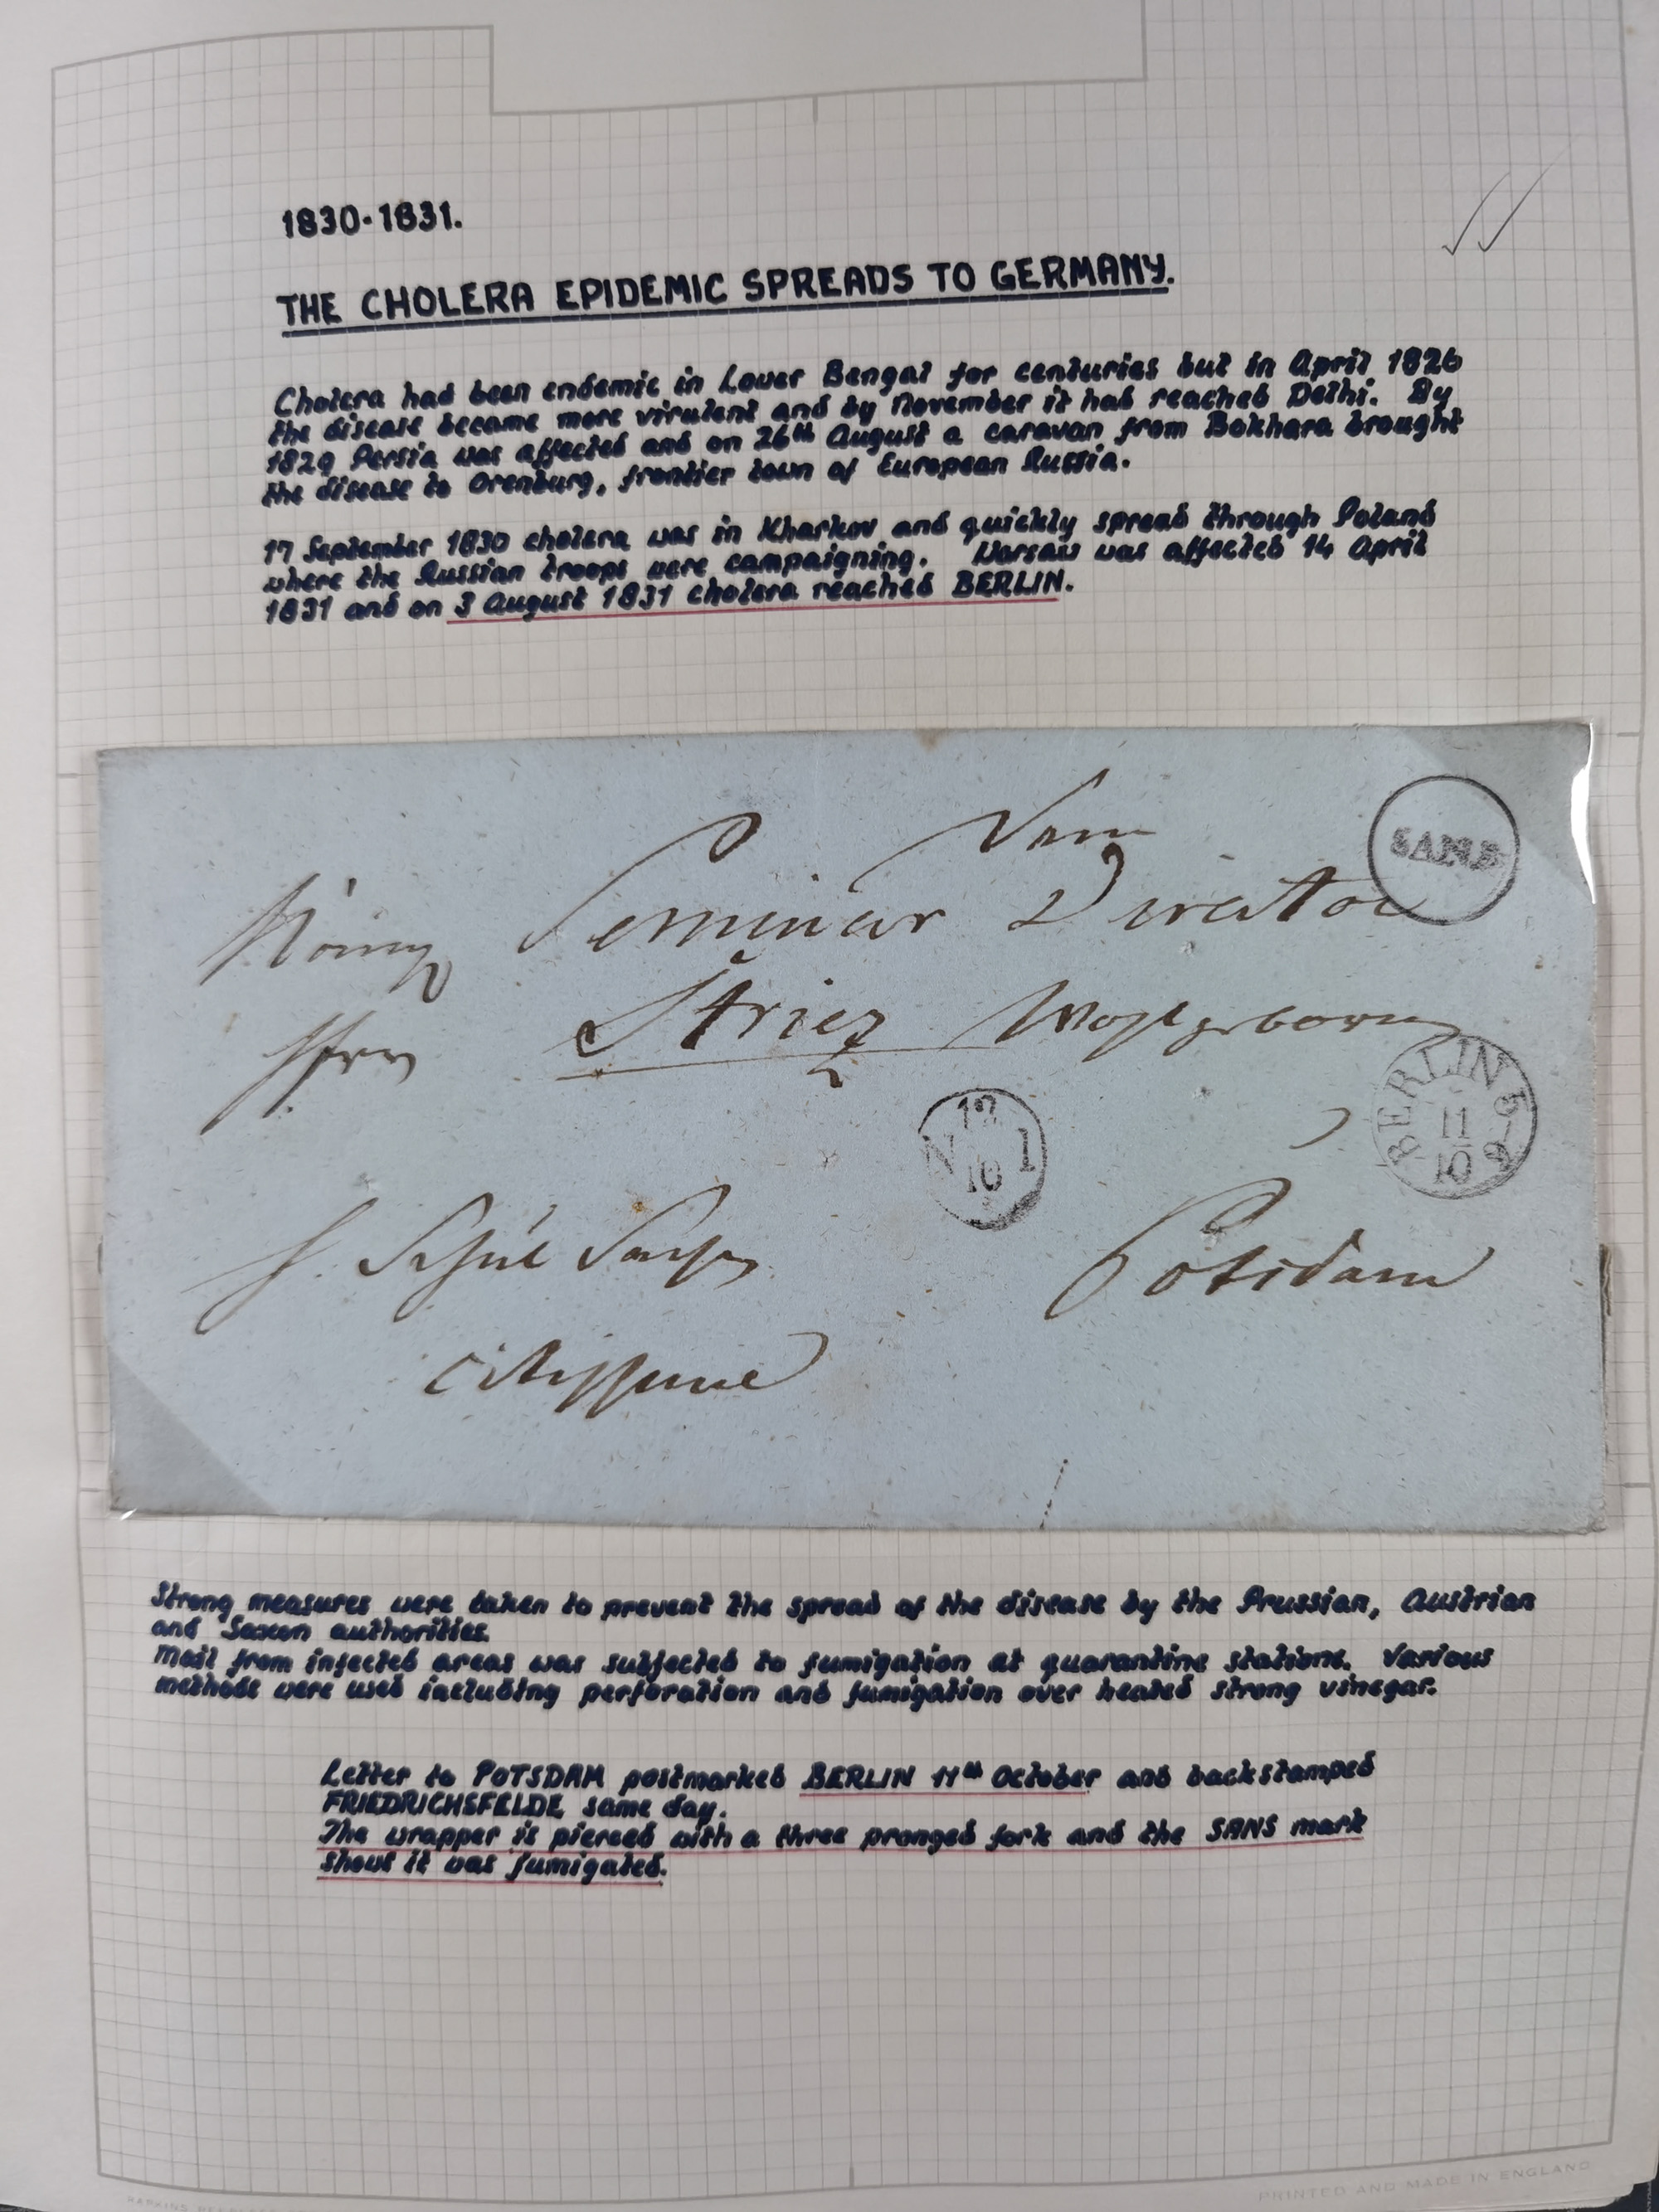 1830-1831.
THE CHOLERA EPIDEMIC SPREADS TO GERMANY.
Cholera had been endemic in Lower Bengal for centuries but in April 1826
the disease became more virulent and by November it had reached Delhi. By
1829 Persia was affected and on 26th August a caravan from Bokhara brought
the disease to Orenburg, frontier town of European Russia.
17 September 1830 cholera was in Kharkov and quickly spread through Poland
where the Russian troops were campaigning. Warsaw was affected 14 April
1831 and on 3 August 1831 cholera reached BERLIN.
Seminar Director
Striez Wohlgeboren
BERLIN
11
10
12
N 1
10
Potsdam
citissime
Strong measures were taken to prevent the spread of the disease by the Prussian, Austrian
and Saxon authorities.
Mail from infected areas was subjected to fumigation at quarantine stations. Various
methods were used including perforation and fumigation over heated strong vinegar.
Letter to POTSDAM postmarked BERLIN 11th October and backstamped
FRIEDRICHSFELDE same day.
The wrapper is pierced with a three pronged fork and the SANS mark
shows it was fumigated.
PRINTED AND MADE IN ENGLAND